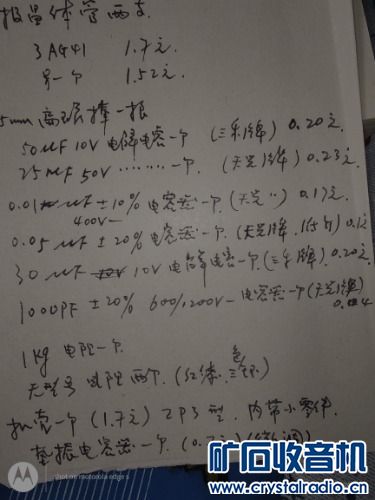 报晶体管两支
3AG41 1.7元.
另一个 1.52元.
5mm 高 棒一根
50μF 10V 电解电容一个 (三乐牌) 0.20元.
25μF 50V ……… 一个. (天光牌) 0.23元.
0.01 μF ±10% 电容器一个. (天光〃) 0.17元.
400V—
0.05 μF ±20% 电容器一个. (天光牌. 0.1
30 μF 10V 电解电容一个. (三乐牌) 0.20元.
1000PF ±20% 600/1200V— 电容器一个 (天光牌)
1kg 电阻一个.
无型号 电阻两个. (红绿. 色)
一个 (1.7元) 2P3型. 内带小零件.
电容器一个.
hot on motorola edge s
矿石收音机
www.crystalradio.cn